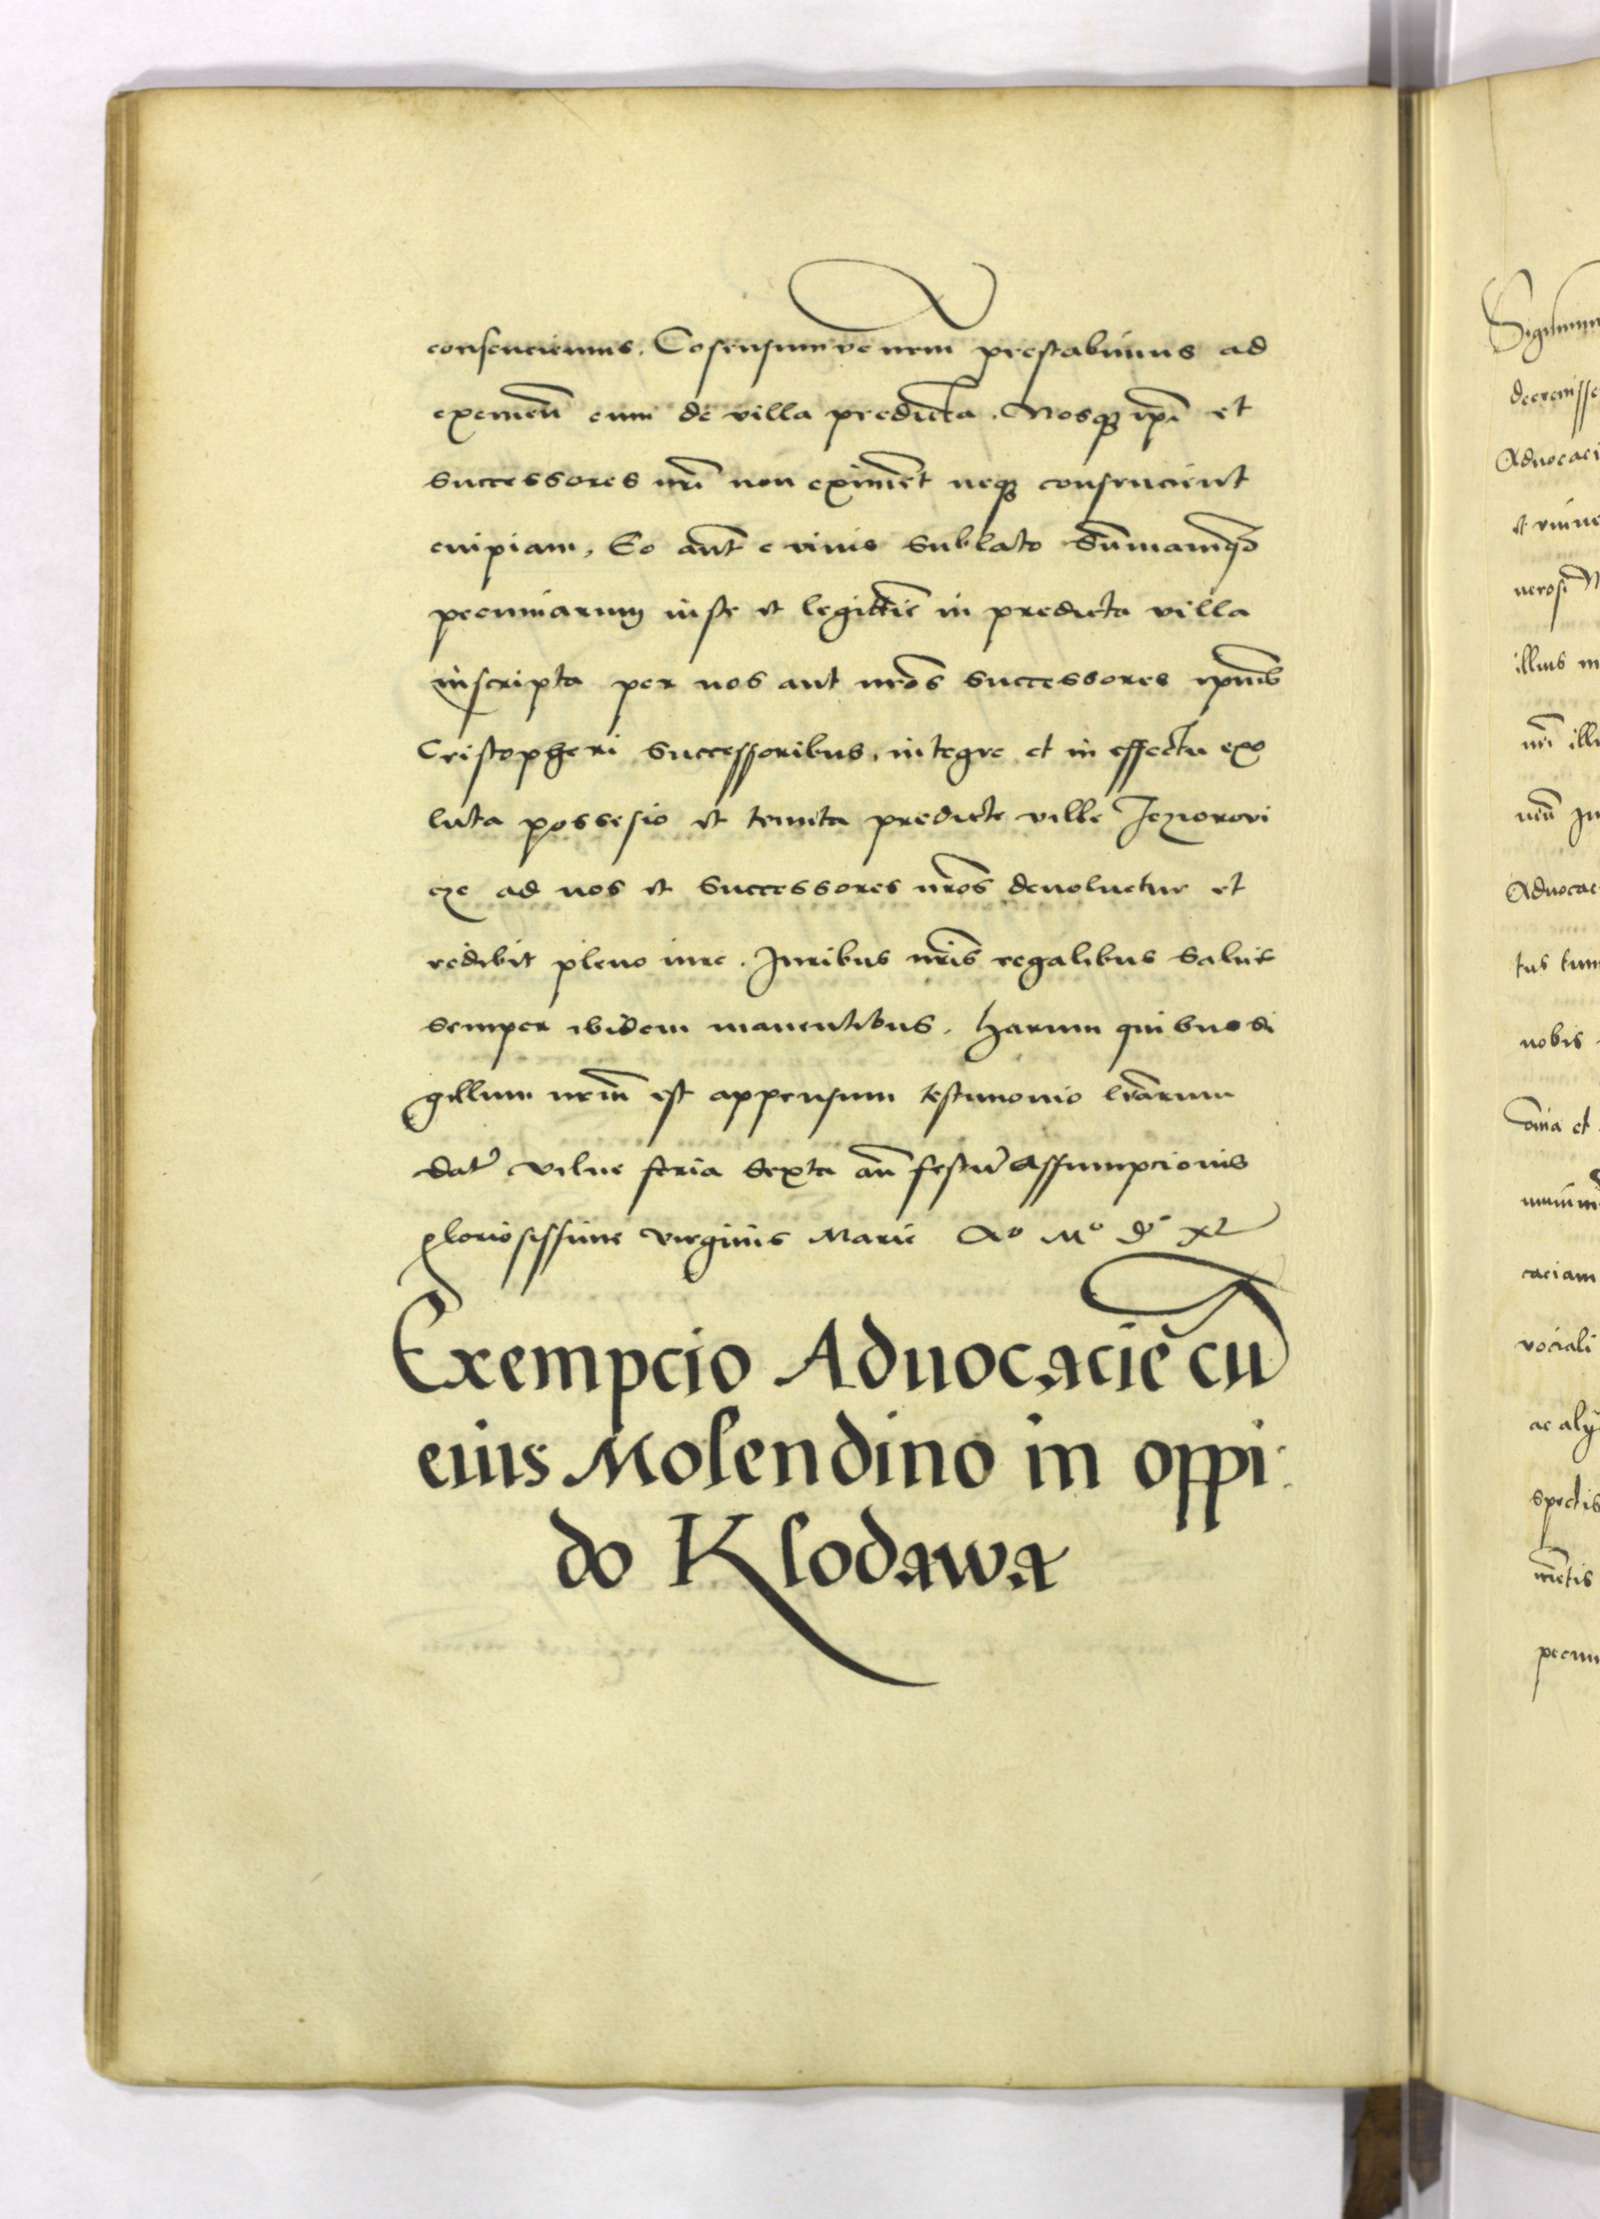 consenciemus. Cosensumve nrm prestabimus ad
eximen̄ eum de villa predicta. Nosq3 ip̄i et
successores nr̄i non eximēt neq3 consencient
cuipiam, Eo aūt e vivis sublato Sūmamq3
pecuniarum iuste et legittīe in predicta villa
inscripta per nos aut nrōs successores ip̄iusq3
Cristopheri successoribus, integre et in effectu exo
luta possesio et tenuta predicte ville Jeziorovi
cze ad nos et Successores nrōs devoluetur et
redibit pleno iure. Juribus nrīs regalibus salvis
semper ibidem manentibus. Harum quibus si
gillum nrm̄ est appensum testimonio lrārum
dat̄ Vilne feria sexta an̄ festū Assumpcionis
gloriosissime virginis Marie Aº Mº dº xl
Exempcio Aduocacie cū
eius Molendino in oppi
do Klodawa
Sigismun
decrevisse
Aduocaci
nerosi
illius
nri
Aduocac
tus
nobis
et
caciam
vociali
ac aly
spectis
pecun